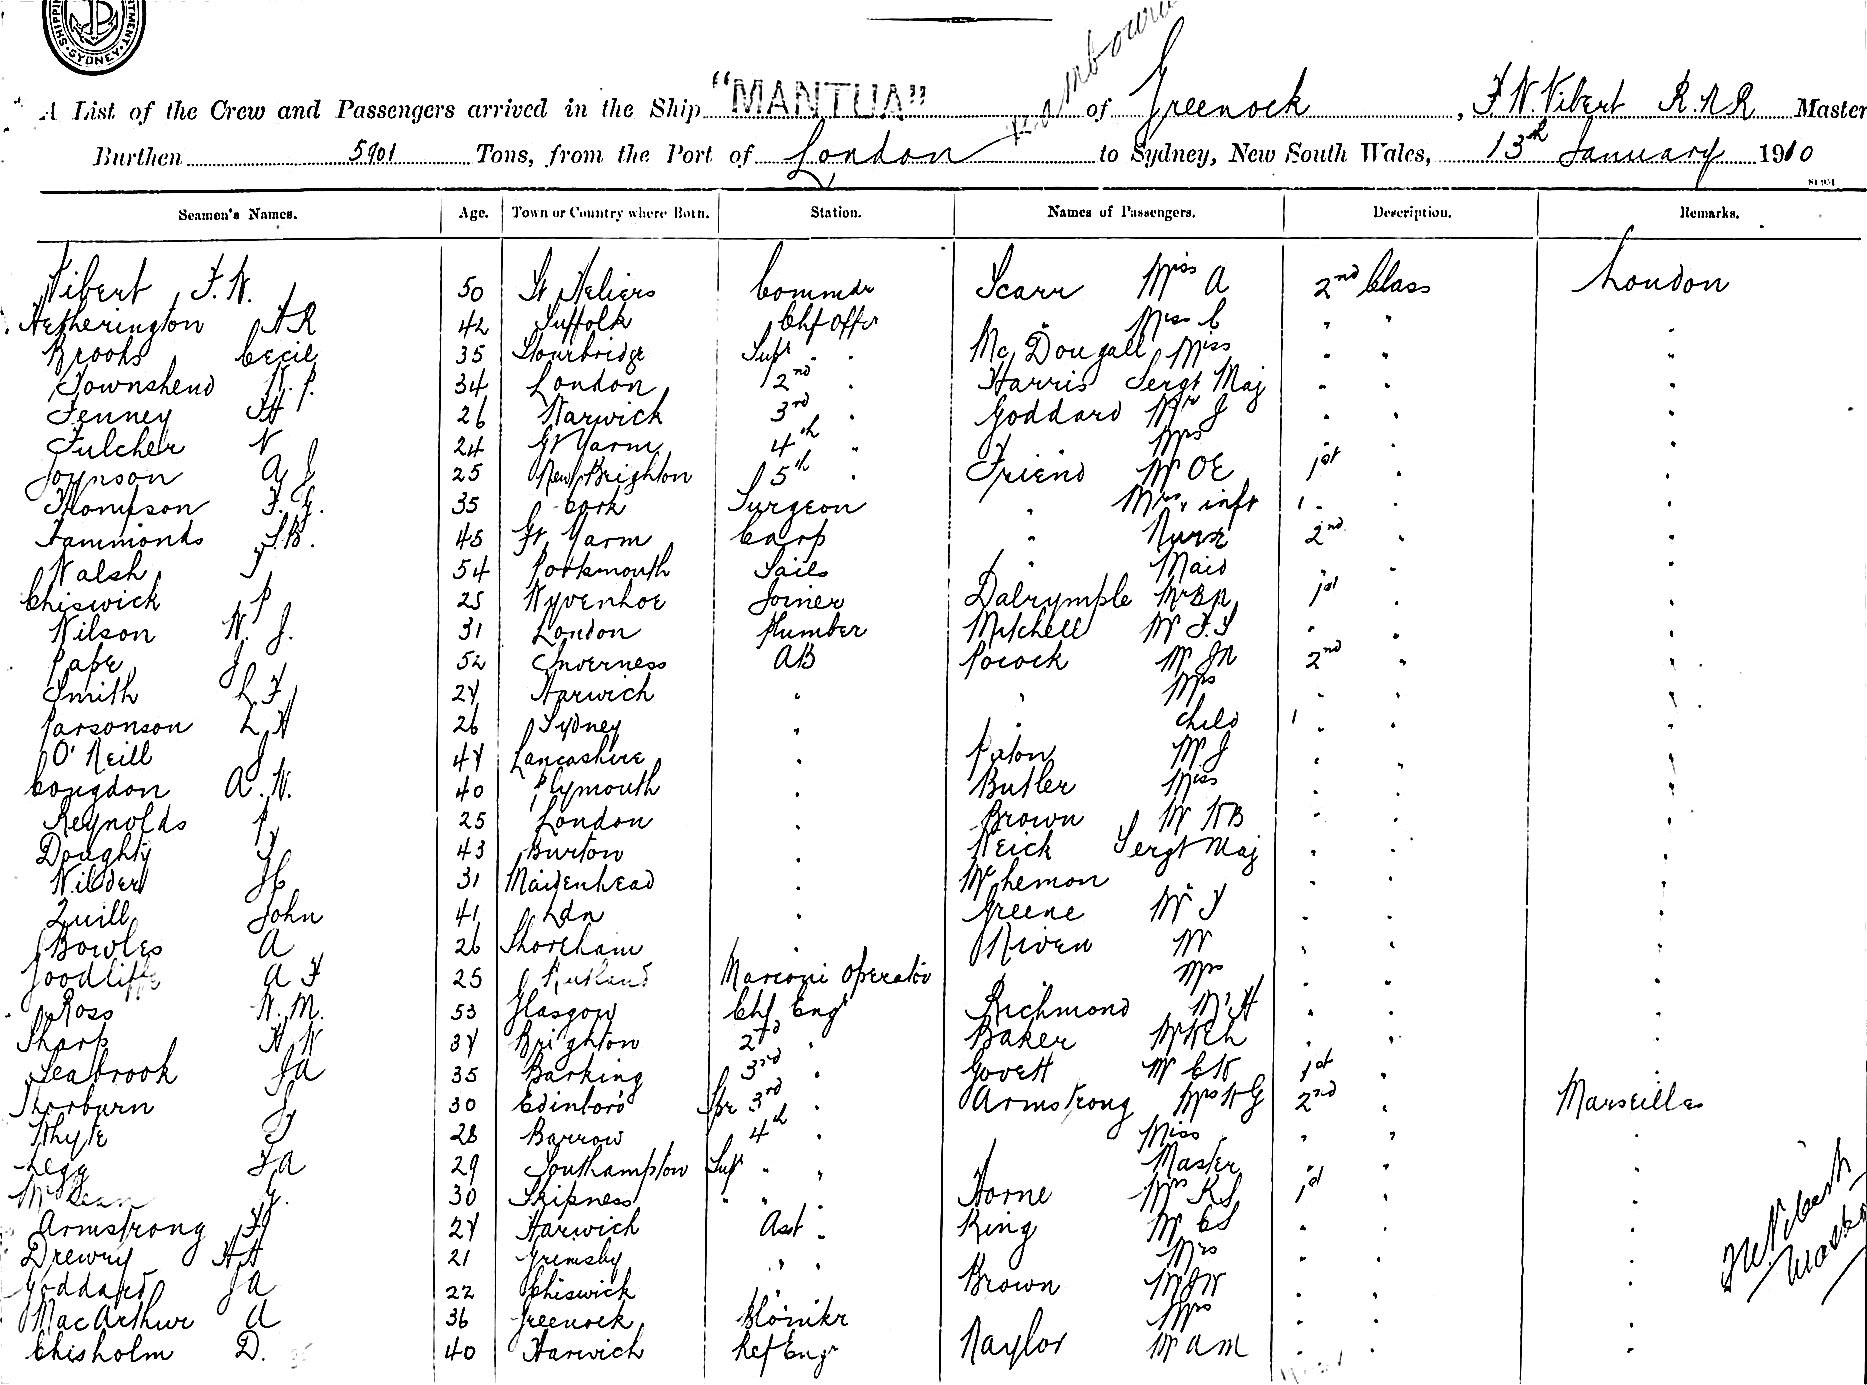 SHIPPING DEPARTMENT. SYDNEY
A List of the Crew and Passengers arrived in the Ship "MANTUA" of Greenock, F. W. Vibert R.N.R Master
Burthen 5901 Tons, from the Port of London to Sydney, New South Wales, 13th January 1910
Seamen's Names. Age. Town or Country where Born. Station. Names of Passengers. Description. Remarks.
Vibert F. W. 50 St Heliers Commdr Scarr Miss A 2nd Class London
Hetherington H R 42 Suffolk Chf Offr " Miss C " " "
Brooks Cecil 35 Stourbridge Supr " " Mc Dougall Miss " " "
Townshend W. P. 34 London 2nd " Harris Sergt Maj " " "
Fenney H 26 Warwick 3rd " Goddard Mr J " " "
Fulcher W 24 Gt Yarm 4th " Mrs " " "
Joynson A J 25 New Brighton 5th " Friend Mr O E 1st " "
Thompson F. G. 35 Cork Surgeon " Mrs & infr " " "
Hammonds S. B. 45 Gt Yarm Carp " Nurse 2nd " "
Walsh J 54 Portsmouth Sails " Maid " " "
Chiswick P 25 Wyvenhoe Joiner Dalrymple 1st " "
Wilson W. J. 31 London Plumber Mitchell Mr " " "
Pape J 52 Inverness AB Pocock Mr 2nd " "
Smith L F 27 Harwich " " Mrs " " "
Parsonson L H 26 Sydney " " child " " "
O'Neill J 47 Lancashire " Paton Mr J " " "
Congdon A. W. 40 Plymouth " Butler Miss " " "
Reynolds P 25 London " Brown Mr W B " " "
Doughty J 43 Burton " Sergt Maj " " "
Wilder 31 Maidenhead " " " "
Quill John 41 Ldn " Greene Mr " " "
Bowles A 26 Shoreham " Niven Mr " " "
Goodliffe A F 25 Rutland Marconi Operator Mrs " " "
Ross W. M. 53 Glasgow Chf Engr Richmond Mr H " " "
Sharp H W 37 Brighton 2nd " Baker Mr " " "
Seabrook J A 35 Barking 3rd " Govett Mr C W 1st " "
Thorburn J 30 Edinboro Spr 3rd " Armstrong Mrs W G 2nd " Marseilles
Whyte J 28 Barrow 4th " Miss " " "
Legg F A 29 Southampton Supr " " Master " " "
30 " " " Horne Mrs 1st " "
Armstrong H 27 Harwich Asst " King Mr C S " " "
Drewry H H 21 Grimsby " " Mrs " " "
Goddard J A 22 Chiswick " Brown Mr J W " " "
MacArthur A 36 Greenock Mrs " " "
Chisholm D. 40 Harwich Ref Engr Naylor Mr A M " " "
F W Vibert
Master